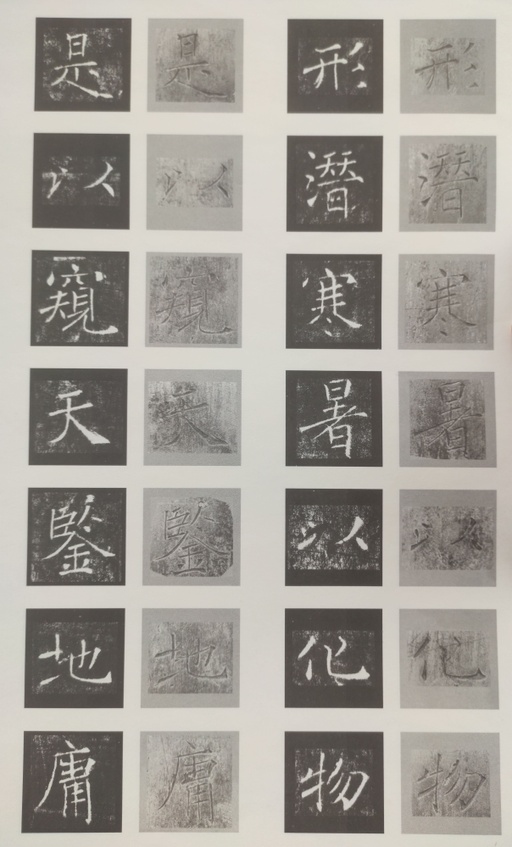 形潜寒暑以化物
形潜寒暑以化物
是以窺天鍳地庸
是以窺天鍳地庸